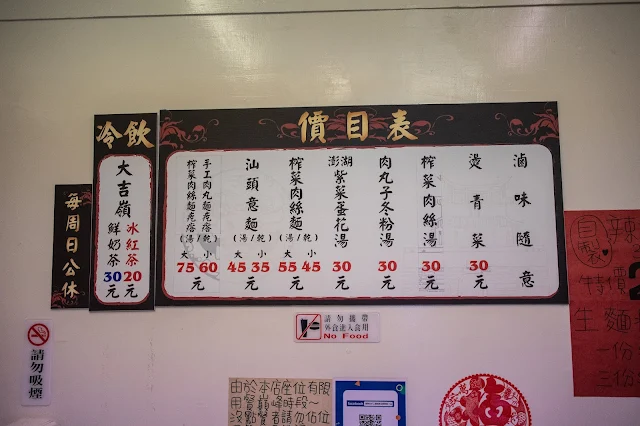 價目表
滷味隨意
燙青菜
30元
榨菜肉絲湯
30元
肉丸子冬粉湯
30元
澎湖
紫菜蛋花湯
30元
榨菜肉絲麵
(湯/乾)
大 小
55 45元
汕頭意麵
(湯/乾)
大 小
45 35元
手工肉丸麵疙瘩
榨菜肉絲麵疙瘩
(湯/乾)
大 小
75 60元
冷飲
大吉嶺
冰紅茶
20元
鮮奶茶
30元
每周日公休
請勿吸煙
請勿攜帶
外食進入食用
No Food
由於本店座位有限
用餐巔峰時段~
沒點餐者請勿佔位
facebook
福
自製
辣
特價
生麵
一份
三份